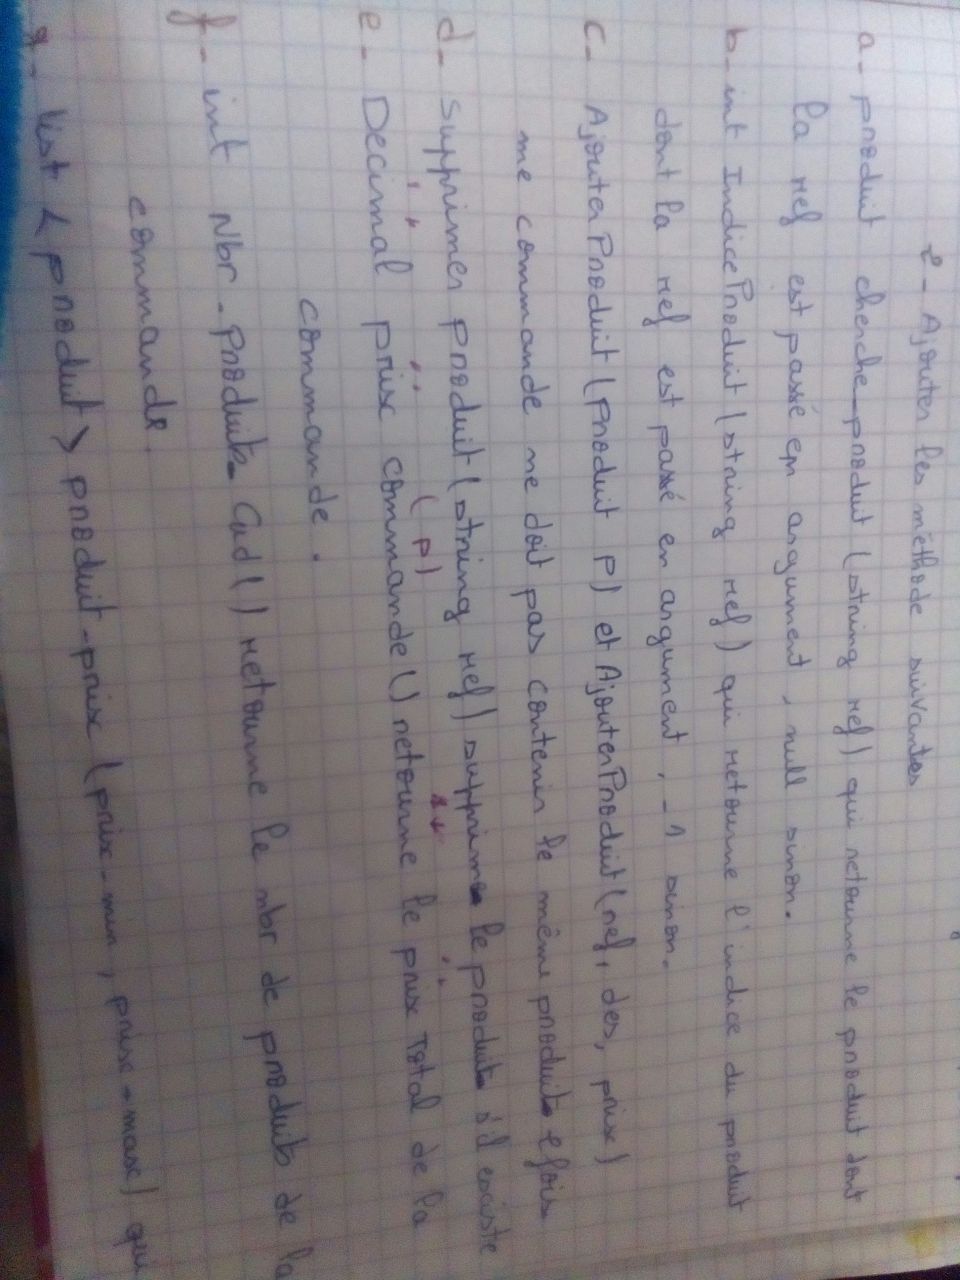 2 - Ajouter les méthode suivantes
a - produit cherche_produit (string ref) qui retourne le produit dont
la ref est passé en argument, null sinon.
b - int IndiceProduit (string ref) qui retourne l'indice du produit
dont la ref est passé en argument, -1 sinon.
c - AjouterProduit (produit P) et AjouterProduit (ref, des, prix)
me commande ne doit pas contenir le même produit 2 fois
d - Supprimer produit (string ref) supprime le produit s'il existe
(P)
e - Decimal prix commande () retourne le prix Total de la
commande.
f - int Nbr_Produits_Cmd () retourne le nbr de produits de la
commande.
g - list < produit > produit-prix (prix-min, prix-max) qui